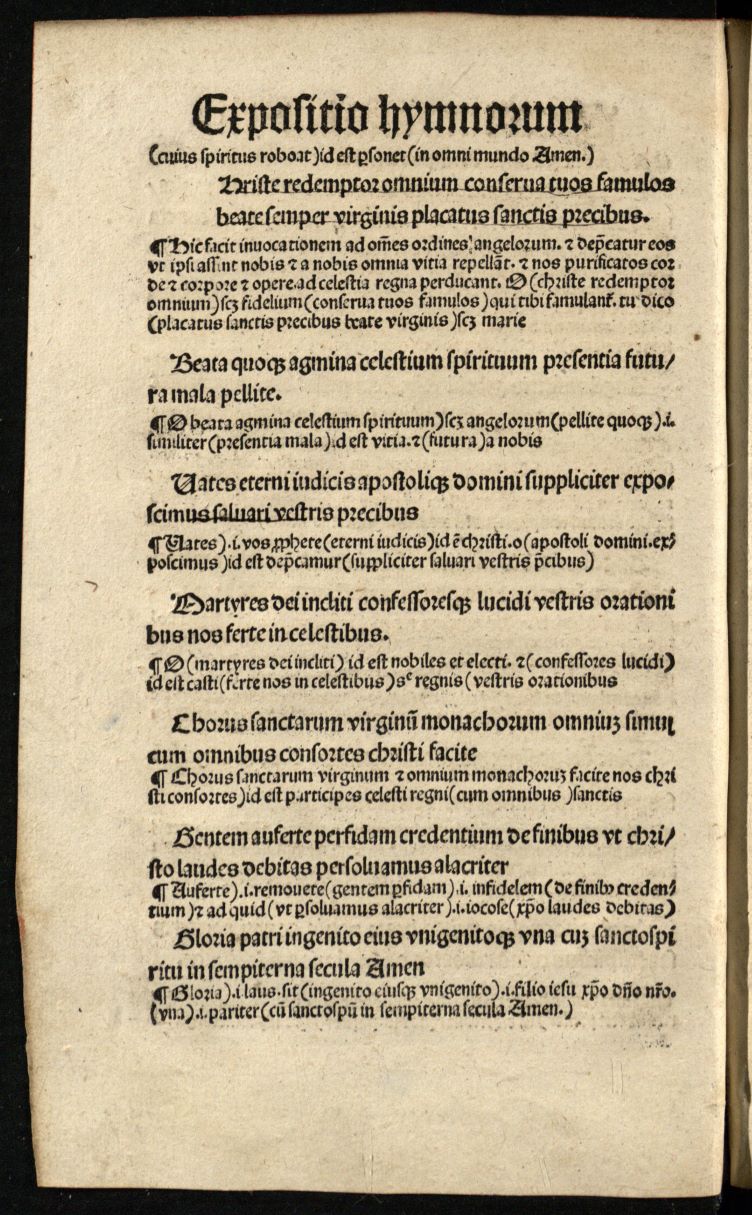 Expositio hymnorum
(cuius spiritus roboat)id est ꝑsonet(in omni mundo Amen.)
Xriste redemptor omnium conserua tuos famulos
beate semper virginis placatus sanctis precibus.
¶Hic facit inuocationem ad om̄es ordines angelorum. ⁊ dep̄catur eos
vt ipsi assint nobis ⁊ a nobis omnia vitia repellāt. ⁊ nos purificatos cor
de ⁊ corpore ⁊ opere.ad celestia regna perducant. O (christe redemptor
omnium)scꝫ fidelium(conserua tuos famulos)qui tibi famulant̄. tu dico
(placatus sanctis precibus beate virginis)scꝫ marie
Beata quoqꝫ agmina celestium spirituum presentia futu/
ra mala pellite.
¶O beata agmina celestium spirituum)scꝫ angelorum(pellite quoqꝫ).i.
similiter(presentia mala)id est vitia.⁊(futura)a nobis
Uates eterni iudicis apostoliqꝫ domini suppliciter expo/
scimus saluari vestris precibus
¶Uates).i.vos ꝓphete(eterni iudicis)id ē christi.o(apostoli domini.ex/
poscimus)id est dep̄camur(suppliciter saluari vestris p̄cibus)
Martyres dei incliti confessoresqꝫ lucidi vestris orationi
bus nos ferte in celestibus.
¶O(martyres dei incliti) id est nobiles et electi. ⁊(confessores lucidi)
id est casti(ferte nos in celestibus)sᶜ regnis(vestris orationibus
Chorus sanctarum virginū monachorum omniuꝫ simul
cum omnibus consortes christi facite
¶Chorus sanctarum virginum ⁊ omnium monachoruꝫ facite nos chri
sti consortes)id est participes celesti regni(cum omnibus )sanctis
Gentem auferte perfidam credentium de finibus vt chri/
sto laudes debitas persoluamus alacriter
¶Auferte).i.remouete(gentem ꝑfidam).i. infidelem(de finibꝰ creden/
tium)⁊ ad quid(vt ꝑsoluamus alacriter).i.iocose(xp̄o laudes debitas)
Gloria patri ingenito eius vnigenitoqꝫ vna cuꝫ sanctospi
ritu in sempiterna secula Amen
¶Gloria).i laus.sit(ingenito eiusqꝫ vnigenito).i.filio iesu xp̄o dn̄o nr̄o.
(vna).i.pariter(cū sanctospū in sempiterna secula Amen.)